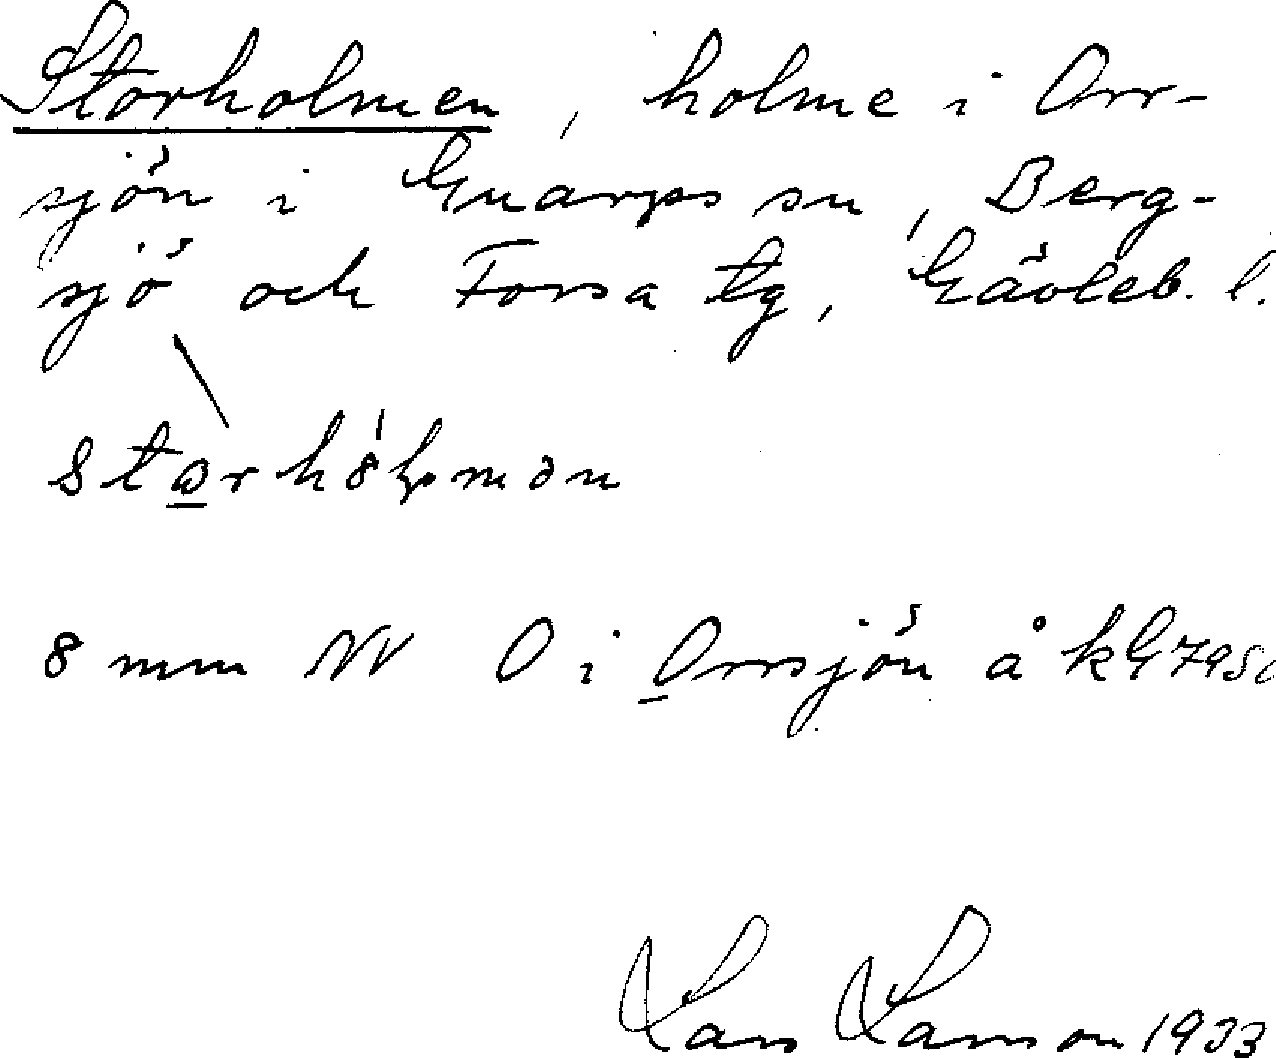 Storholmen, holme i Orr-
sjön i Gnarps sn, Berg-
sjö och Forsa tg, Gävleb. l.
8 mm NV O i Orrsjön å kG 795
Lars Larson 1933